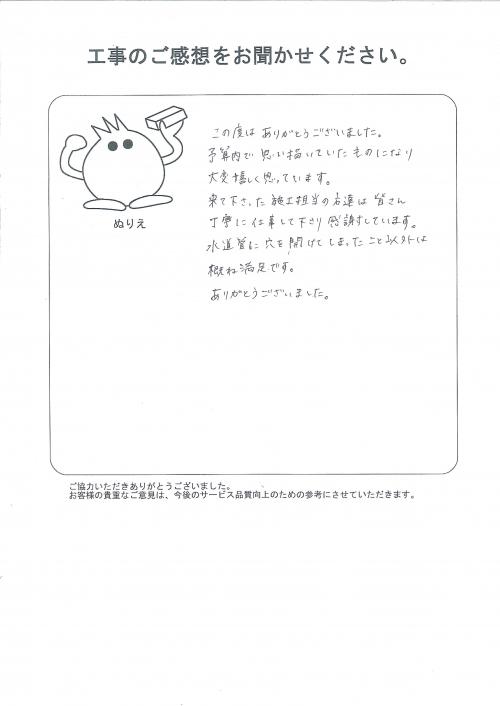 工事のご感想をお聞かせください。
この度は ありがとうございました。
予算内で 思い描いていたものになり
大変嬉しく思っています。
来て下さった 施工担当の方達は 皆さん
丁寧に仕事して下さり 感謝しています。
水道管に穴を開けてしまったこと以外は
概ね満足です。
ありがとうございました。
ぬりえ
ご協力いただきありがとうございました。
お客様の貴重なご意見は、今後のサービス品質向上のための参考にさせていただきます。